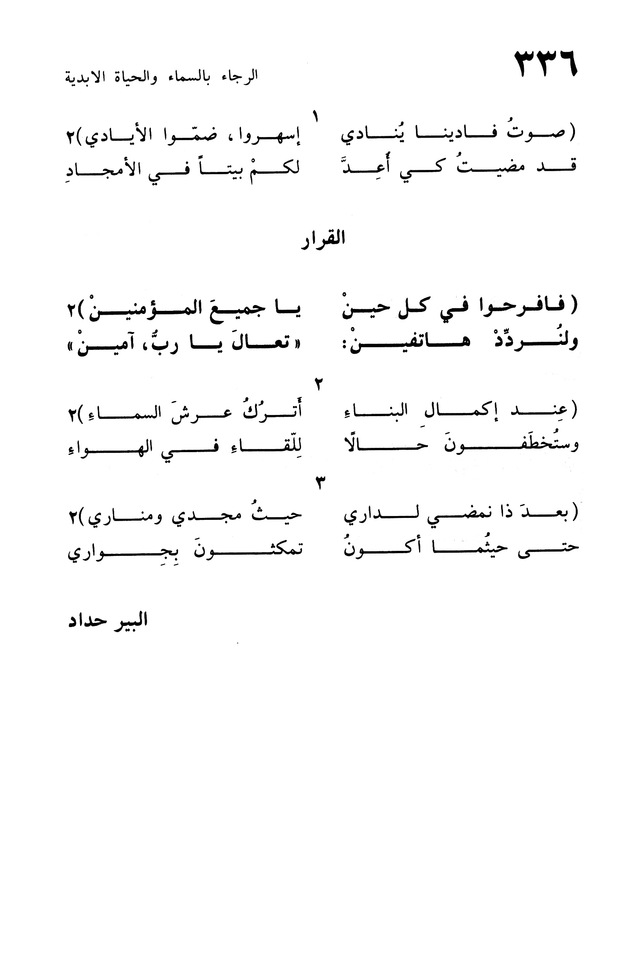 ٣٣٦
الرجاء بالسماء والحياة الابدية
١
(صوتُ فادينا يُنادي إسهروا، ضمّوا الأيادي)٢
قد مضيتُ كي أُعِدَّ لكمْ بيتاً في الأمجادِ
القرار
(فافرحوا في كل حينْ يا جميعَ المؤمنينْ)٢
ولنُردِّدْ هاتفينْ: «تعالَ يا ربُّ، آمينْ»
٢
(عِند إكمالِ البناءِ أَترُكُ عرشَ السماءِ)٢
وستُخطَفونَ حالًا لِلّقاءِ في الهواءِ
٣
(بعدَ ذا نمضي لداري حيثُ مجدي ومناري)٢
حتى حيثُما أكونُ تمكثونَ بِجِواري
البير حداد